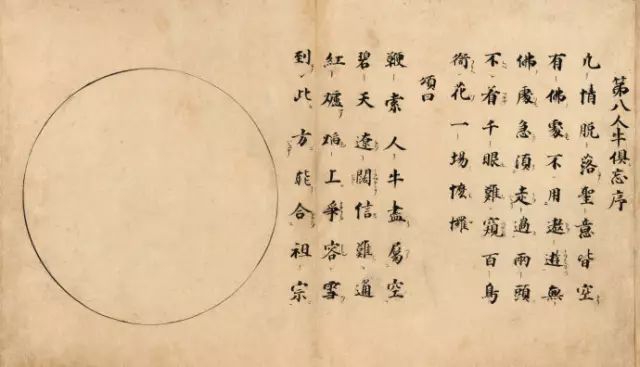 第八人牛俱忘序
凢情脱落聖意皆空
有佛處不用遨遊無
佛處急須走過兩頭
不着千眼難窺百鳥
銜花一場懡㦬
頌曰
鞭索人牛盡屬空
碧天遼闊信難通
紅爐焔上爭容雪
到此方能合祖宗